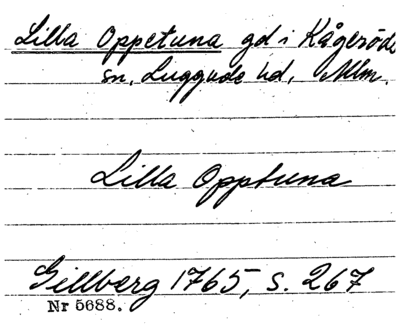 Lilla Oppetuna gd i Kågeröds
sn, Luggude hd, Mlm.
Lilla Opptuna
Gillberg 1765, s. 267
Nr 5688.